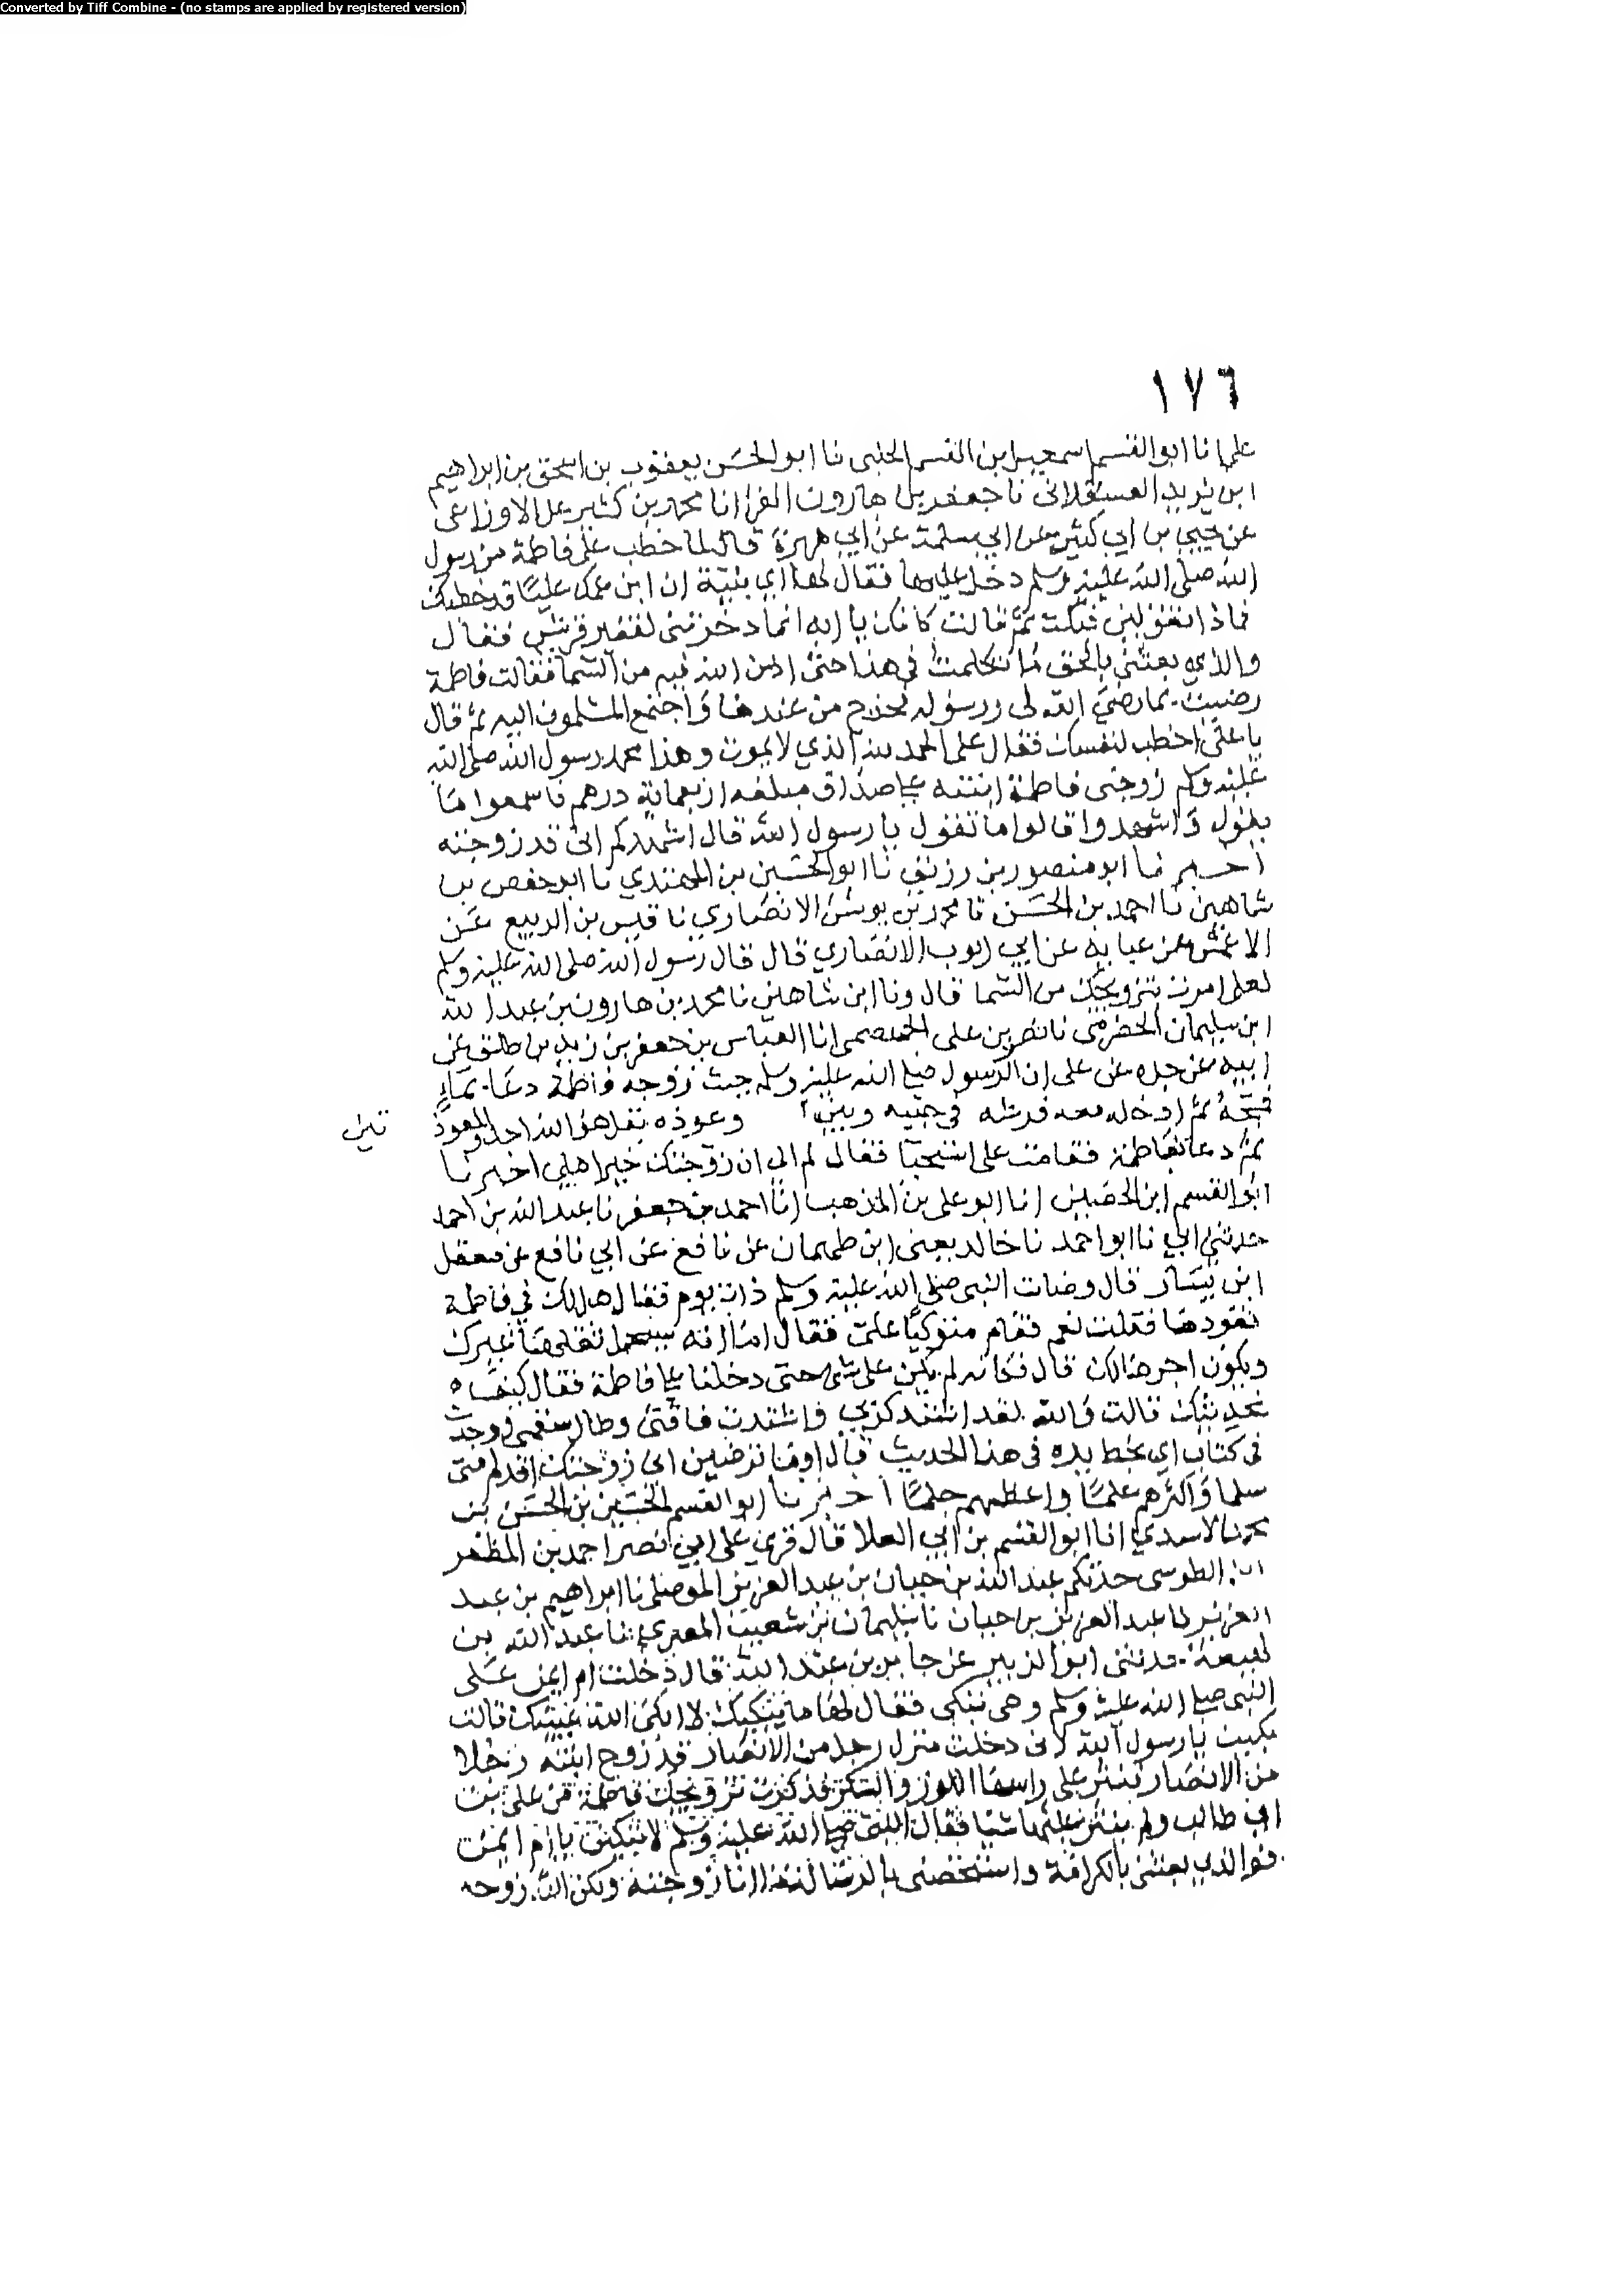 Converted by Tiff Combine - (no stamps are applied by registered version)
١٧٦
علما نا ابو القسم اسمعيل بن القسم الحلبى نا ابو الحسن يعقوب بن اسحق بن ابراهيم
ابن يزيد العسقلانى نا جعفر بن هارون الفرا نا محمد بن كثير عن الاوزاعى
عن يحيى بن ابي كثير عن ابي سلمة عن ابي هريرة قال لما خطب على فاطمة من رسول
الله صلى الله عليه وسلم دخل عليها فقال لها اي بنية ان ابن عمك عليا قد خطبك
فماذا تقولين فبكت ثم قالت كانك يا ابه انما دخرتنى لفقير قريش فقال
والذي بعثنى بالحق ما تكلمت فى هذا حتى اذن الله فيه من السما فقالت فاطمة
رضيت بما رضى الله لى ورسوله فخرج من عندها واجتمع المسلمون اليه ثم قال
يا على اخطب لنفسك فقال على الحمد لله الذي لا يموت وهذا محمد رسول الله صلى الله
عليه وسلم زوجنى فاطمة ابنته على صداق مبلغه اربعماية درهم فاسمعوا ما
يقول واشهدوا قالوا ما تقول يا رسول الله قال اشهدكم انى قد زوجته
اخبرنا ابو منصور بن زريق نا ابو الحسين بن المهتدي نا ابو حفص بن
شاهين نا احمد بن الحسن نا محمد بن يونس الانصاري نا قيس بن الربيع عن
الاعمش عن عباية عن ابي ايوب الانصاري قال قال رسول الله صلى الله عليه وسلم
لعلى امرت بتزويجك من السما قال ونا ابن شاهين نا محمد بن هارون بن عبد الله
ابن سليمان الحضرمى نا نصر بن على الجهضمى انا العباس بن جعفر بن زيد بن طلق عن
ابيه عن جده عن على ان الرسول صلى الله عليه وسلم حيث زوجه فاطمة دعا بماء
فمجه ثم ادخله معه فرشه فى جيبه وبين وعوذه بقل هو الله احد والمعوذ
تين
ثم دعا بفاطمة فقامت على استحيا فقال لم ال ان زوجتك خير اهلى اخبرنا
ابو القسم ابن الحصين انا ابو على بن المذهب انا احمد بن جعفر نا عبد الله بن احمد
حدثنى ابي نا ابو احمد نا خالد يعنى ابن طهمان عن نافع عن ابي نافع عن معقل
ابن يسار قال وضات النبى صلى الله عليه وسلم ذات يوم فقال هل لك فى فاطمة
تعودها فقلت نعم فقام متوكيا على فقال اما انه سيحمل ثقلها غيرك
ويكون اجرها لك قال فكانه لم يكن على شى حتى دخلنا على فاطمة فقال كيف
تجدينك قالت والله لقد اشتد كربي واشتدت فاقتى وطال سقمى ووجدت
فى كتاب ابي بخط يده فى هذا الحديث قال اوما ترضين انى زوجتك اقدم امتى
سلما واكثرهم علما واعظمهم حلما اخبرنا ابو القسم الحسين بن الحسن بن
محمد الاسدي انا ابو القسم بن ابي العلا قال قرى على ابي نصر احمد بن المظفر
ابن الطوسى حدثكم عبد الله بن حبان بن عبد العزيز الموصلى نا ابراهيم بن عبد
العزيز نا عبد العزيز بن حبان نا سليمان بن شعيب المصري نا عبد الله بن
لهيعة حدثنى ابو الزبير عن جابر بن عبد الله قال دخلت ام ايمن على
النبى صلى الله عليه وسلم وهى تبكى فقال لها ما يبكيك لا ابكى الله عينيك قالت
بكيت يا رسول الله لانى دخلت منزل رجل من الانصار قد زوج ابنته رجلا
من الانصار فنثر على راسها اللوز والسكر فذكرت تزويجك فاطمة من على بن
ابي طالب ولم ينثر عليها شيا فقال النبى صلى الله عليه وسلم لا تبكين يا ام ايمن
فوالذي بعثنى بالكرامة واستخصنى بالرسالة ما انا زوجته ولكن الله زوجه